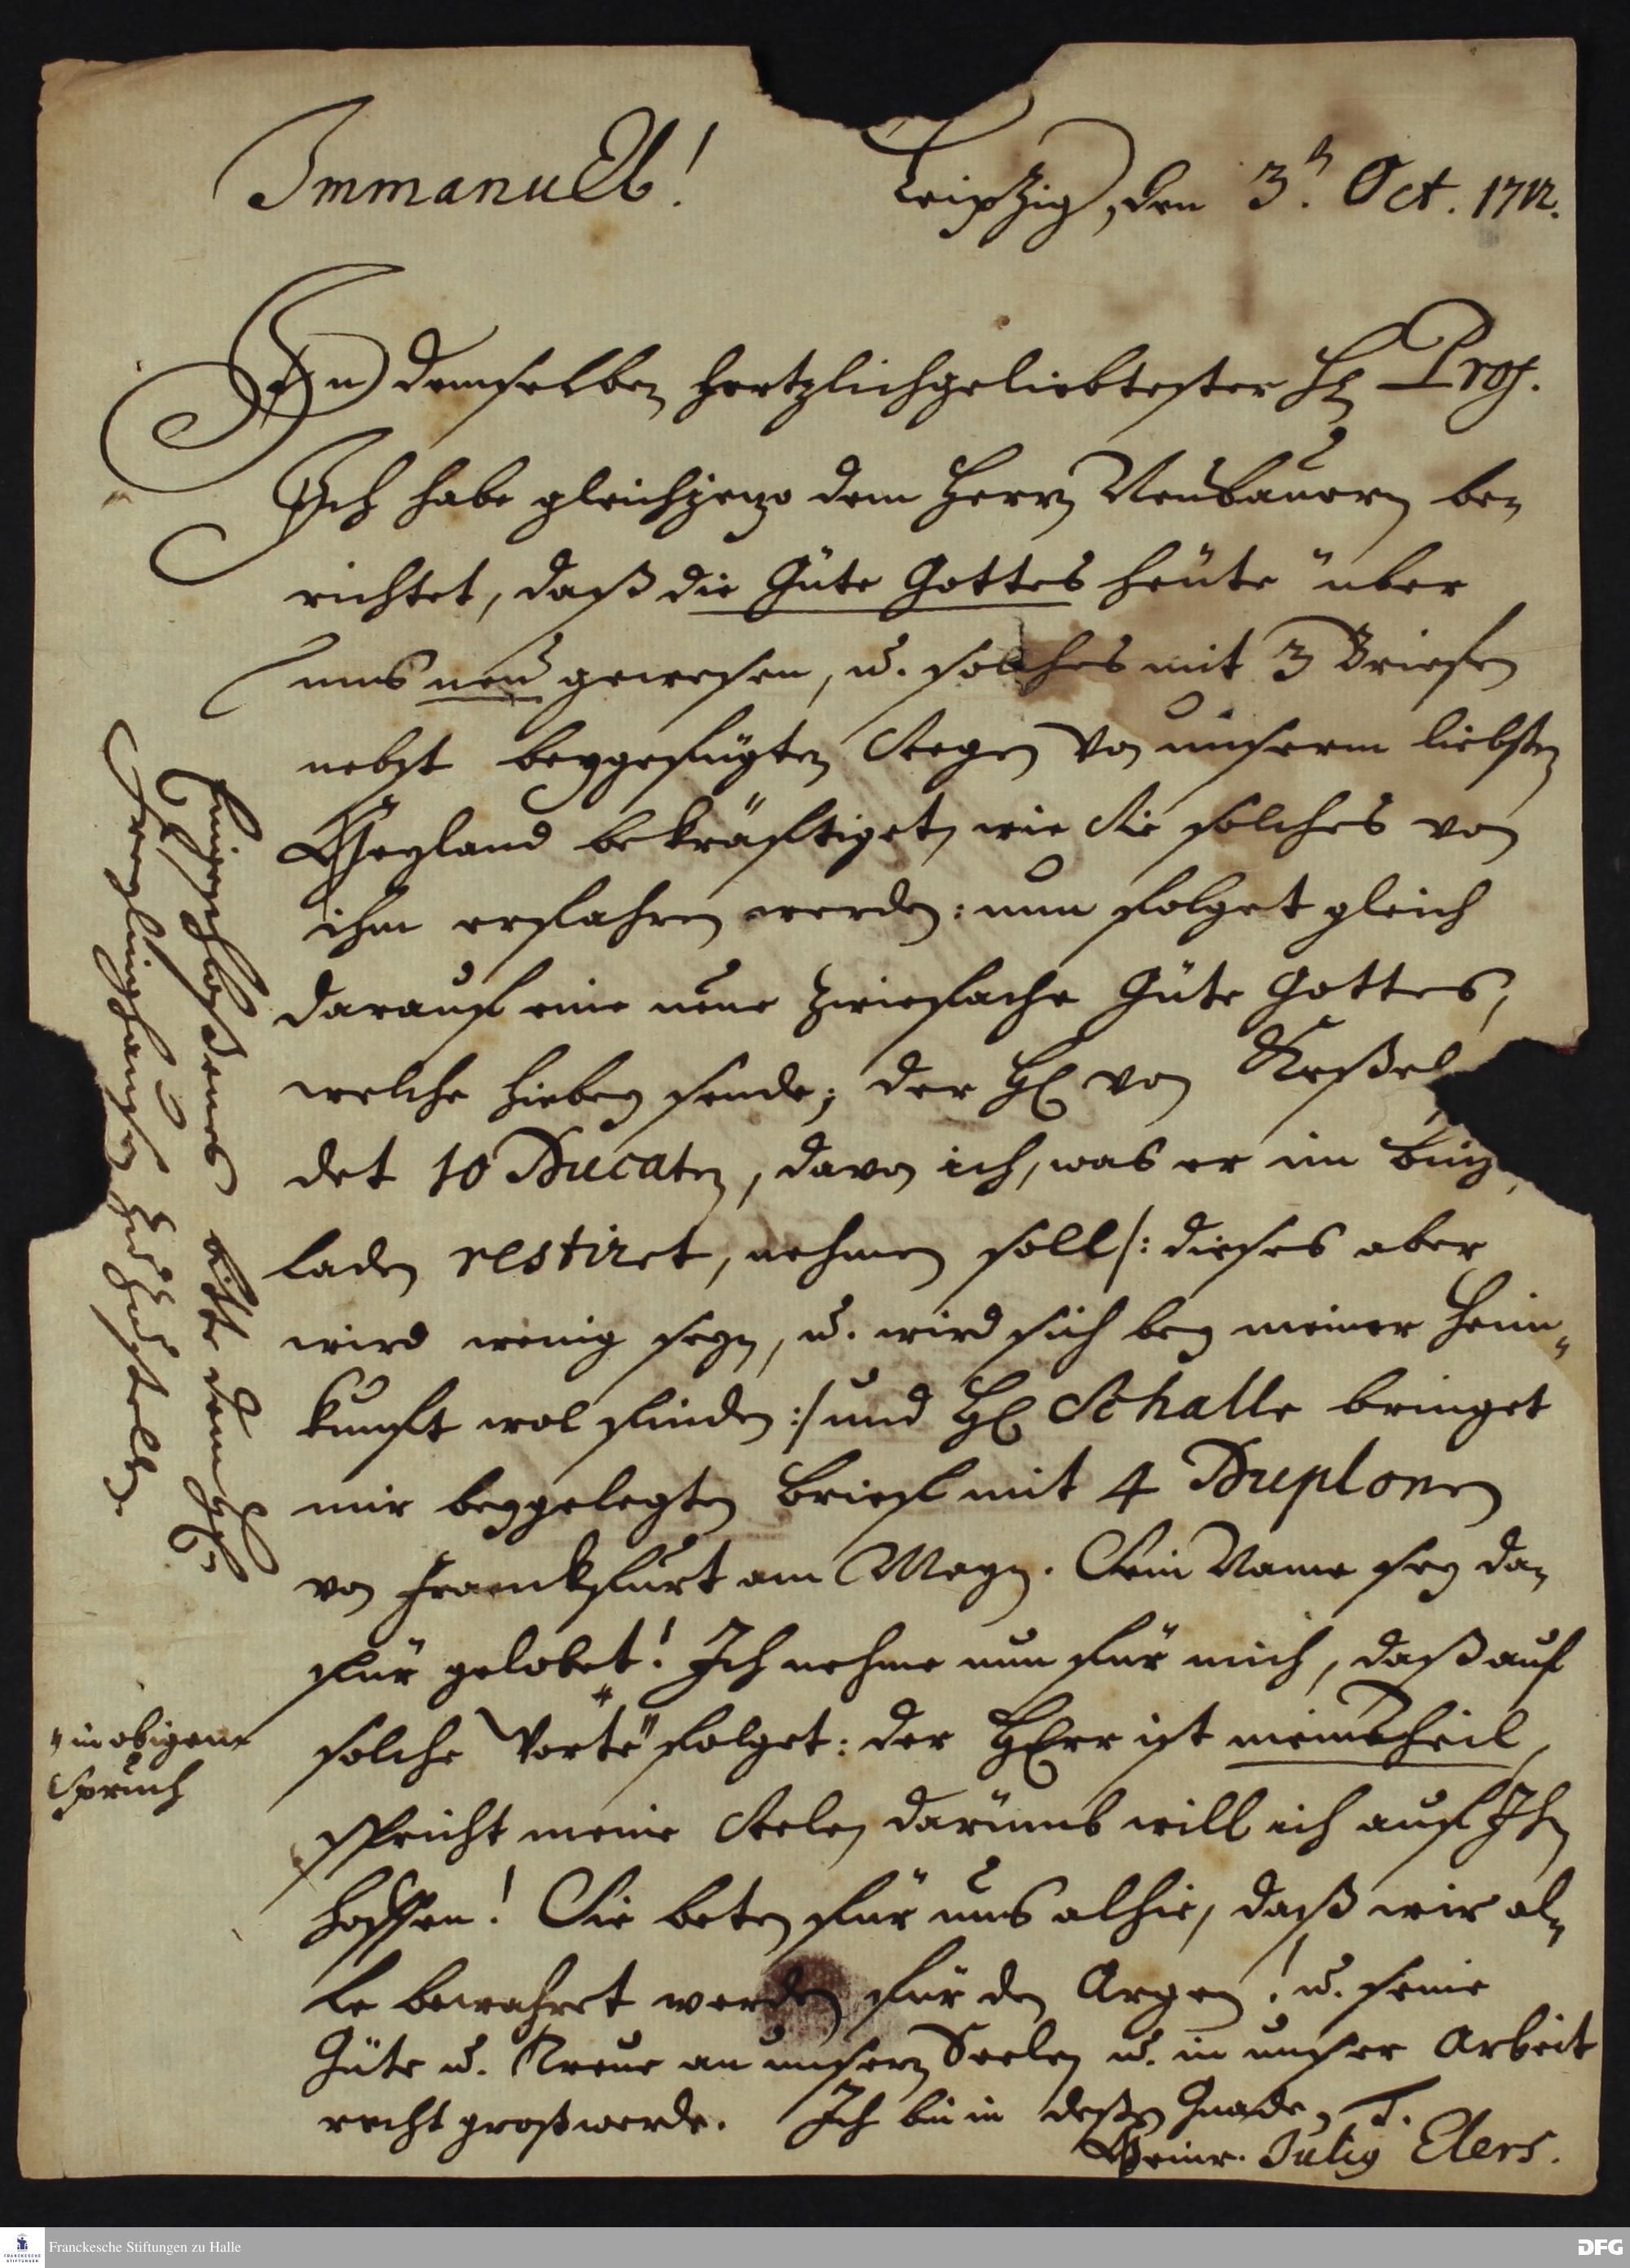 Immanuel!
Leipzig, den 3t. Oct. 1712.
In demselben hertzlichgeliebtester H. Prof.
Ich habe gleichjetzo dem Herrn Neubauern be-
richtet, daß die Güte Gottes heute über
uns neu gewesen, u. solches mit 3 Briefen
nebst beygefügten Seegen von unserm liebsten
Heyland bekräftiget, wie Sie solches von
ihm erfahren werden: nun folget gleich
darauf eine neue zwiefache Güte Gottes,
welche hiebey sende; der H. von Keßel
det 10 Ducaten, davon ich, was er im Buch-
laden restiret, nehmen soll/: dieses aber
wird wenig seyn, u. wird sich bey meiner Heim-
kunft wol finden :/ und H. Schalle bringet
mir beygelegten Brief mit 4 Duplonen
von Franckfurt am Mayn. Sein Name sey da-
für gelobet! Ich nehme nun für mich, daß auf
solche Worte folget: der HErr ist mein Theil,
spricht meine Seele, darümb will ich auf Ihn
hoffen! Sie beten für uns alhie, daß wir al-
le bewahret werden für den Argen! u. seine
Güte u. Treue an unsern Seelen u. in unser Arbeit
recht groß werde. Ich bin in deßen Gnade, T.
Heinr. Julig Elers.
in obigem
Spruch
Eingeschloßenes bitte dem H.
Freylinghausen zuzustellen.
Franckesche Stiftungen zu Halle
DFG
FRANCKESCHE
STIFTUNGEN